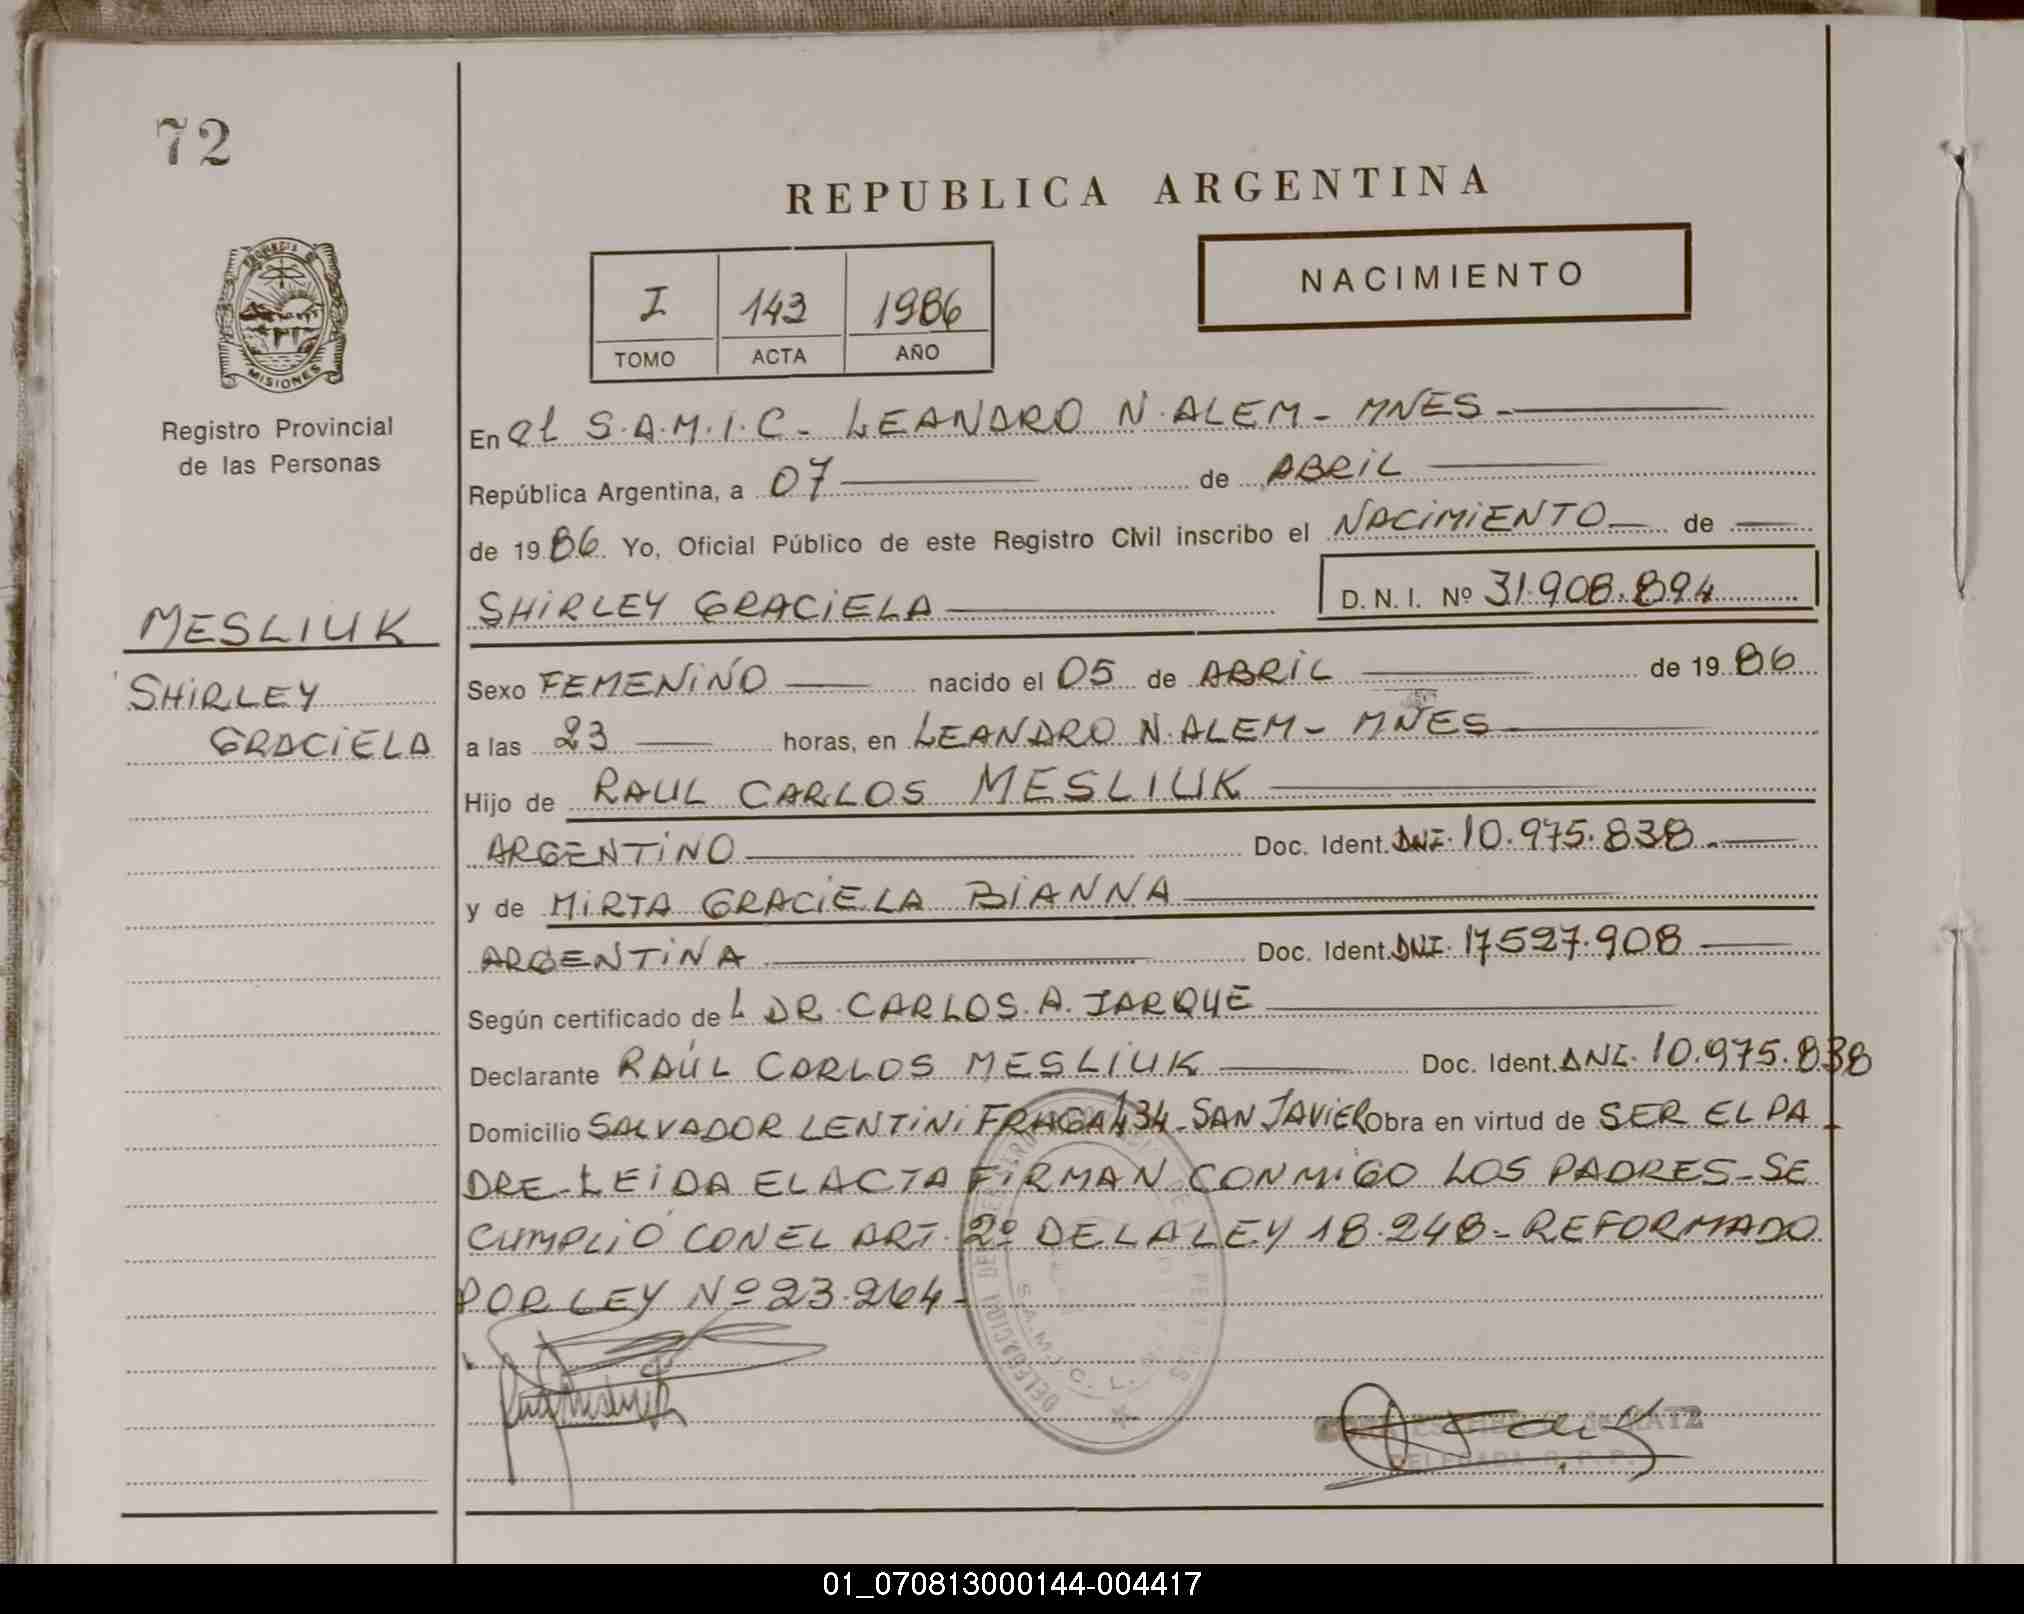 72
REPUBLICA ARGENTINA
NACIMIENTO
I 143 1986
TOMO ACTA AÑO
PROVINCIA DE
MISIONES
Registro Provincial
de las Personas
MESLIUK
SHIRLEY
GRACIELA
En el S.A.M.I.C. LEANDRO N. ALEM - MNES -
República Argentina, a 07 de ABRIL
de 1986. Yo, Oficial Público de este Registro Civil inscribo el NACIMIENTO de
SHIRLEY GRACIELA D.N.I. Nº 31.908.894
Sexo FEMENINO nacido el 05 de ABRIL de 1986
a las 23 horas, en LEANDRO N. ALEM - MNES
Hijo de RAUL CARLOS MESLIUK
ARGENTINO Doc. Ident. DNI. 10.975.838.
y de MIRTA GRACIELA BIANNA
ARGENTINA Doc. Ident. DNI. 17527.908
Según certificado de L DR. CARLOS. A. JARQUE
Declarante RAÚL CARLOS MESLIUK Doc. Ident. DNI. 10.975.838
Domicilio SALVADOR LENTINI FRAGA 434 - SAN JAVIER Obra en virtud de SER EL PA
DRE - LEIDA EL ACTA FIRMAN CONMIGO LOS PADRES - SE
CUMPLIÓ CON EL ART. 2º DE LA LEY 18.248 - REFORMADO
POR LEY Nº 23.264 -
S.A.M.I.C. L.
DELEGADA R.P.P.
01_070813000144-004417